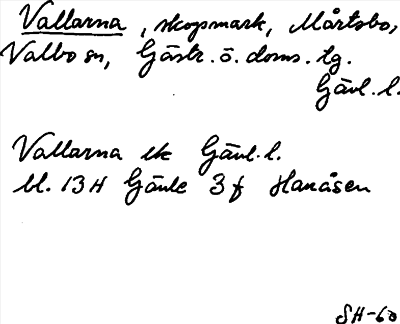 Vallarna, skogsmark, Mårtsbo,
Valbo sn, Gästr. ö. doms. tg.
Gävl. l.
Vallarna ek Gävl. l.
bl. 13H Gävle 3f Hanåsen
SH-60